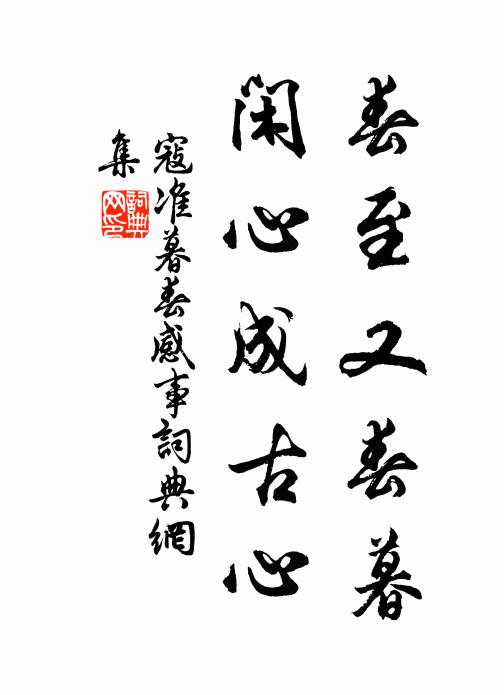 春至又春暮
闲心成古心
寇准暮春感事詞典網
集
詞典
网印